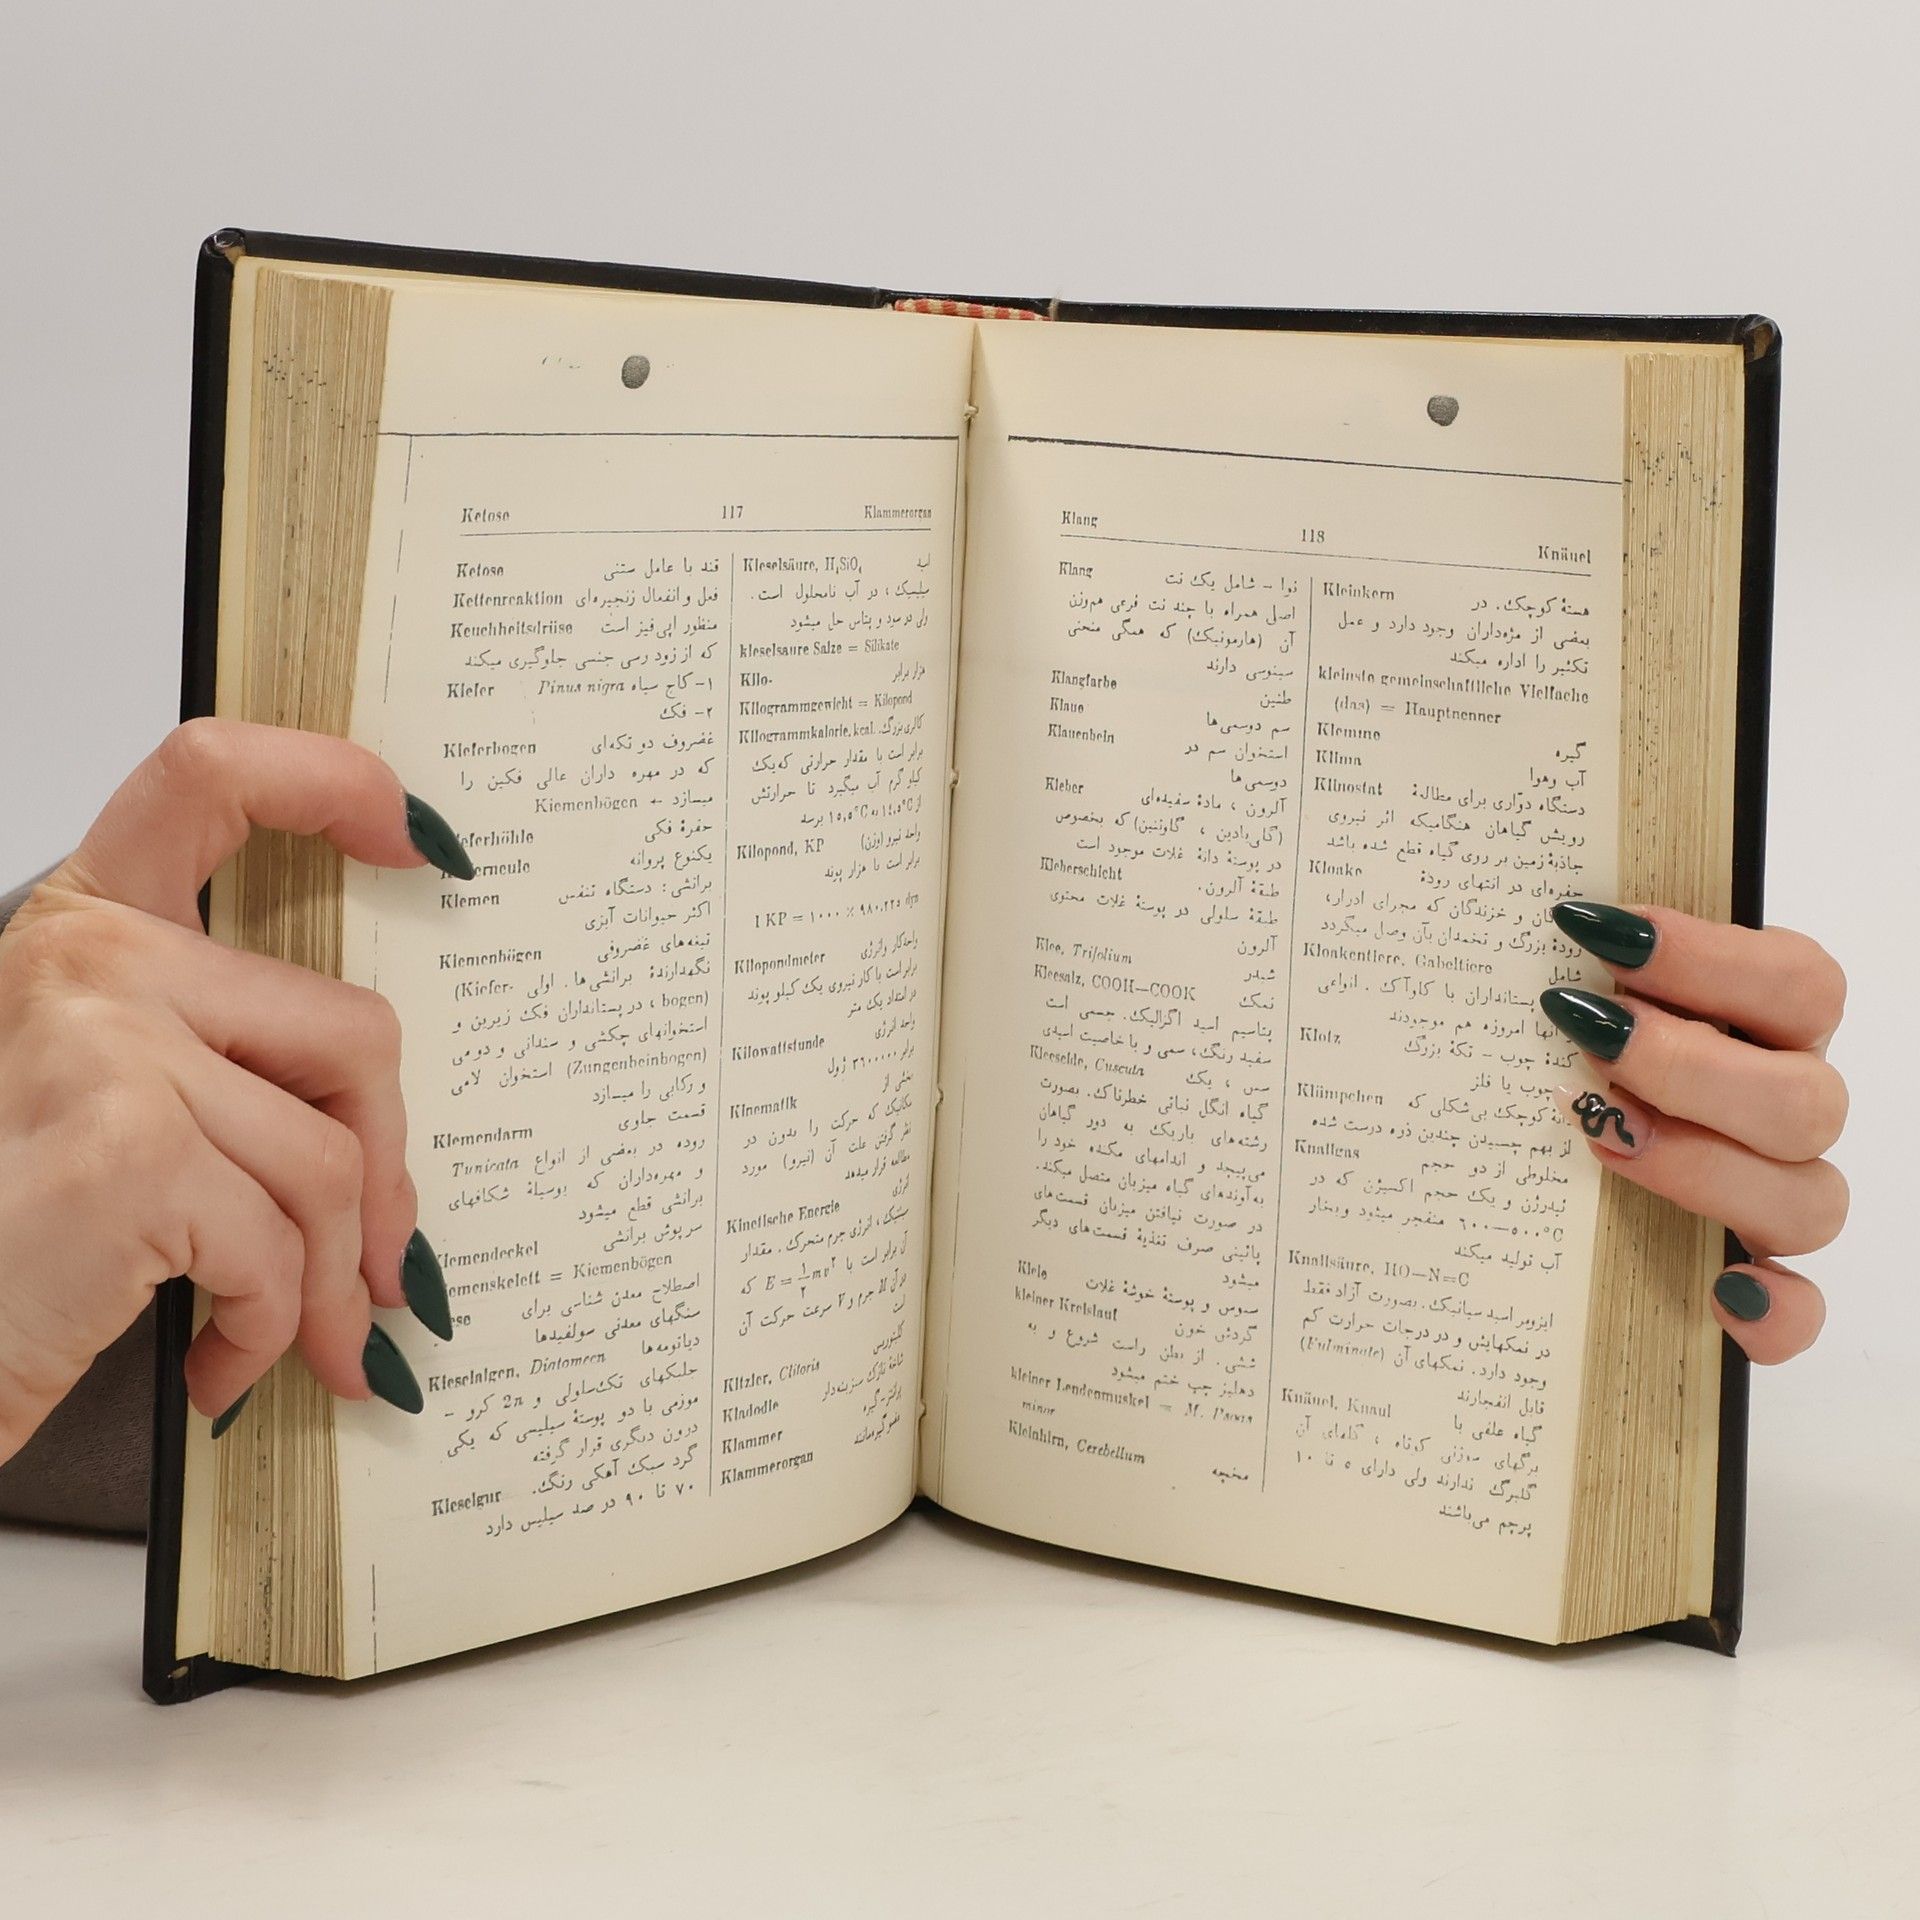 Ketose 117 Klammerorgan
Ketose قند با عامل ستنی
Kettenreaktion فعل و انفعال زنجیره‌ای
Keuchheitsdrüse منظور اپی‌فیز است
که از زود رسی جنسی جلوگیری میکند
Kiefer ۱- کاج سیاه Pinus nigra
۲- فک
Kieferbogen غضروف دو تکه‌ای
که در مهره داران عالی فکین را
میسازد ← Kiemenbögen
eferhöhle حفرهٔ فکی
erneule یکنوع پروانه
Kiemen برانشی: دستگاه تنفس
اکثر حیوانات آبزی
Kiemenbögen تیغه‌های غضروفی
نگهدارندهٔ برانشی‌ها. اولی (Kiefer-
bogen) ، در پستانداران فک زیرین و
استخوانهای چکشی و سندانی و دومی
(Zungenbeinbogen) استخوان لامی
و رکابی را میسازد
Kiemendarm قسمت جلوی
روده در بعضی از انواع Tunicata
و مهره‌داران که بوسیلهٔ شکافهای
برانشی قطع میشود
Kiemendeckel سرپوش برانشی
iemenskelett = Kiemenbögen
ese اصطلاح معدن شناسی برای
سنگهای معدنی سولفیدها
Kieselalgen, Diatomeen دیاتومه‌ها
جلبکهای تک‌سلولی و 2n کرو -
موزمی با دو پوستهٔ سیلیسی که یکی
درون دیگری قرار گرفته
Kieselgur گرد سبک آهکی رنگ.
۷۰ تا ۹۰ در صد سیلیس دارد
Kieselsäure, H₄SiO₄ اسید
سیلیسیک ، در آب نامحلول است .
ولی در سود و پتاس حل میشود
kieselsaure Salze = Silikate
Kilo- هزار برابر
Kilogrammgewicht = Kilopond
Kilogrammkalorie, kcal. کالری بزرگ.
برابر است با مقدار حرارتی که یک
کیلو گرم آب میگیرد تا حرارتش
از ۱٤٫٥°C به ۱٥٫٥°C برسد
Kilopond, KP واحد نیرو (وزن)
برابر است با هزار پوند
1 KP = ۱۰۰۰ × ۹۸۰٫۲۲٥ dyn
Kilopondmeter واحد کار و انرژی
برابر است با کار نیروی یک کیلو پوند
در امتداد یک متر
Kilowattstunde واحد انرژی
برابر ۳٦۰۰۰۰۰ ژول
Kinematik بخشی از
مکانیک که حرکت را بدون در
نظر گرفتن علت آن (نیرو) مورد
مطالعه قرار میدهد
Kinetische Energie انرژی
سینتیک ، انرژی جرم متحرک. مقدار
آن برابر است با E = ۱/۲ mv² که
در آن M جرم و V سرعت حرکت آن
است
Kitzler, Clitoris کلیتوریس
Kladodie شاخهٔ نازک سبز پهن‌دار
Klammer پرانتز-گیره
Klammerorgan عضو گیره‌مانند
Klang 118 Knäuel
Klang نوا - شامل یک نت
اصل همراه با چند نت فرعی هم‌وزن
آن (هارمونیک) که همگی منحنی
سینوسی دارند
Klangfarbe طنین
Klaue سم دوسمی‌ها
Klauenbein استخوان سم در
دوسمی‌ها
Kleber آلرون ، مادهٔ سفیده‌ای
(گلی‌یادین ، گلوتنین) که بخصوص
در پوستهٔ دانهٔ غلات موجود است
Kleberschicht طبقهٔ آلرون.
طبقهٔ سلولی در پوستهٔ غلات محتوی
آلرون
Klee, Trifolium شبدر
Kleesalz, COOK—COOK نمک
پتاسیم اسید اگزالیک. جسمی است
سفید رنگ، سمی و با خاصیت اسیدی
Kleeseide, Cuscuta سس ، یک
گیاه انگل نباتی خطرناک. بصورت
رشته‌های باریک به دور گیاهان
می‌پیچد و اندامهای مکنده خود را
به آوندهای گیاه میزبان متصل میکند.
در صورت نیافتن میزبان قسمت‌های
پائینی صرف تغذیهٔ قسمت‌های دیگر
میشود
Kleie سبوس و پوستهٔ خوشهٔ غلات
kleiner Kreislauf گردش خون
ششی . از بطن راست شروع و به
دهلیز چپ ختم میشود
kleiner Lendenmuskel = M. Psoas
minor
Kleinhirn, Cerebellum مخچه
Kleinkern هستهٔ کوچک. در
بعضی از مژه‌داران وجود دارد و عمل
تکثیر را اداره میکند
kleinste gemeinschaftliche Vielfache
(das) = Hauptnenner
Klemme گیره
Klima آب وهوا
Klinostat دستگاه دوّاری برای مطالعهٔ
رویش گیاهان هنگامیکه اثر نیروی
جاذبهٔ زمین بر روی گیاه قطع شده باشد
Kloake حفره‌ای در انتهای رودهٔ
گان و خزندگان که مجرای ادرار،
رودهٔ بزرگ و تخمدان بآن وصل میگردد
Kloakentiere, Gabeltiere شامل
پستانداران با کلوآک . انواعی
آنها امروزه هم موجودند
Klotz کندهٔ چوب - تکهٔ بزرگ
چوب یا فلز
Klümpchen دانهٔ کوچک بی‌شکلی که
از بهم چسبیدن چندین ذره درست شده
Knallgas مخلوطی از دو حجم
ئیدرژن و یک حجم اکسیژن که در
۵۰۰—۶۰۰°C منفجر میشود و بخار
آب تولید میکند
Knallsäure, HO—N=C
ایزومر اسید سیانیک. بصورت آزاد فقط
در نمکهایش و در درجات حرارت کم
وجود دارد. نمکهای آن (Fulminate)
قابل انفجارند
Knäuel, Knaul گیاه علفی با
برگهای سوزنی کوتاه ، گلهای آن
گلبرگ ندارند ولی دارای ٥ تا ۱۰
پرچم می‌باشند